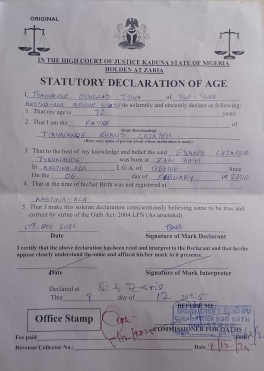 ORIGINAL
IN THE HIGH COURT OF JUSTICE KADUNA STATE OF NIGERIA
HOLDEN AT ZARIA
STATUTORY DECLARATION OF AGE
1. TYAVNANDE DOUGLAS of
KASTINA-ALA BENUE STATE do solemnly and sincerely declare as following:
1. That my age is 72 years
2. That I am the FATHER of
(State Relationship)
TYAVNANDE EVANS CHIATER
(Here state name of person about whom declaration is made)
3. That to the best of my knowledge and belief the said EVANS CHIATER
TYAVNANDE was born at ZAKI BIAM
In KASTINA-ALA L.G.A. of BENUE State
On the 06 day of FEBUARY
4. That at the time of his/her Birth was not registered at
KASTINA-ALA
5. That I make this solemn declaration consciously believing same to be true and
correct by virtue of the Oath Act. 2004 LFN (As amended).
09. DEC. 2025
Date Signature of Mark Declarant
I certify that the above declaration has been read and interpret to the Declarant and that he/she
appear clearly understand the same and affixed his mark to it presence.
Date Signature of Mark Interpreter
Declared at Zaria
This 9 day of 12 2025
BEFORE ME:
Office Stamp
COMMISSIONER FOR OATHS
Fee paid
Revenue Collector No.: Date 9/12/25